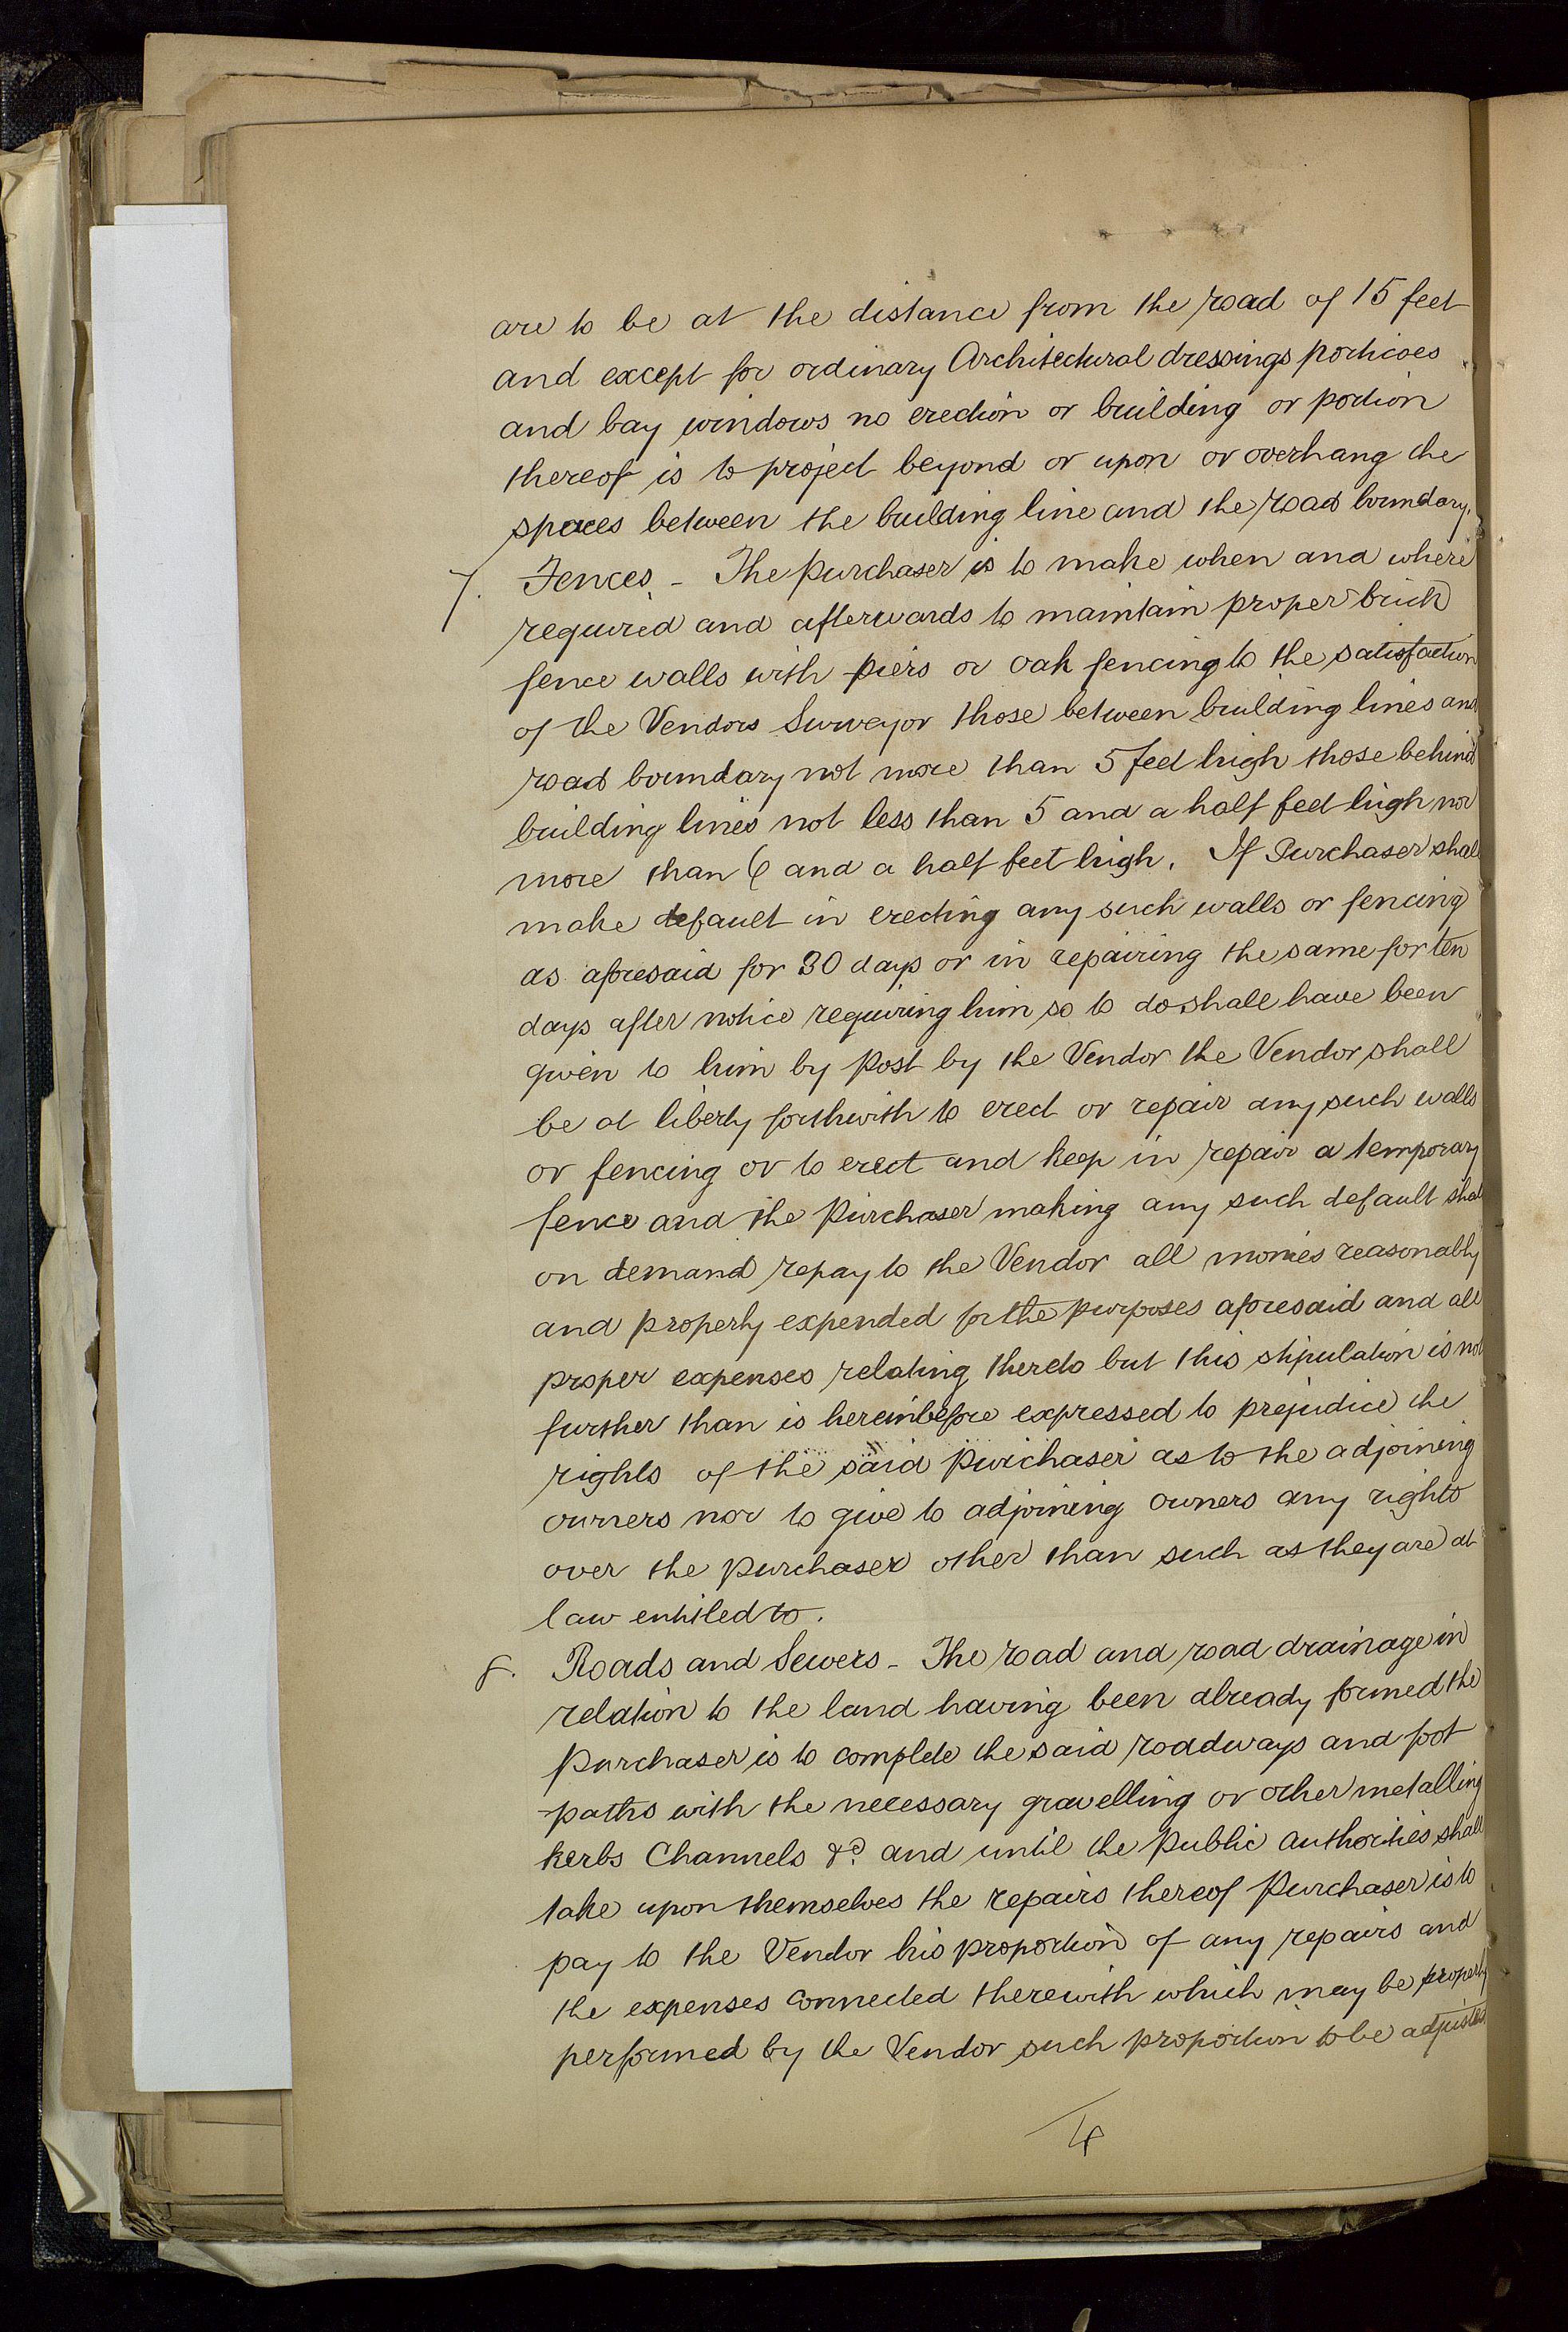 are to be at the distance from the road of 15 feet
and except for ordinary Architectural dressings porticoes
and bay windows no erection or building or portion
thereof is to project beyond or upon or overhang the
spaces between the building line and the road boundary.
7. Fences - The purchaser is to make when and where
required and afterwards to maintain proper brick
fence walls with piers or oak fencing to the satisfaction
of the Vendors Surveyor those between building lines and
road boundary not more than 5 feet high those behind
building lines not less than 5 and a half feet high nor
more than 6 and a half feet high. If Purchaser shall
make default in erecting any such walls or fencing
as aforesaid for 30 days or in repairing the same for ten
days after notice requiring him so to do shall have been
given to him by post by the Vendor the Vendor shall
be at liberty forthwith to erect or repair any such walls
or fencing or to erect and keep in repair a temporary
fence and the Purchaser making any such default shall
on demand repay to the Vendor all monies reasonably
and properly expended for the purposes aforesaid and all
proper expenses relating thereto but this stipulation is not
further than is hereinbefore expressed to prejudice the
rights of the said purchaser as to the adjoining
owners nor to give to adjoining owners any rights
over the purchaser other than such as they are at
law entitled to.
8. Roads and Sewers - The road and road drainage in
relation to the land having been already formed the
Purchaser is to complete the said roadways and foot
paths with the necessary gravelling or other metalling
kerbs Channels &c. and until the public authorities shall
take upon themselves the repairs thereof Purchaser is to
pay to the Vendor his proportion of any repairs and
the expenses connected therewith which may be properly
performed by the Vendor such proportion to be adjusted
4